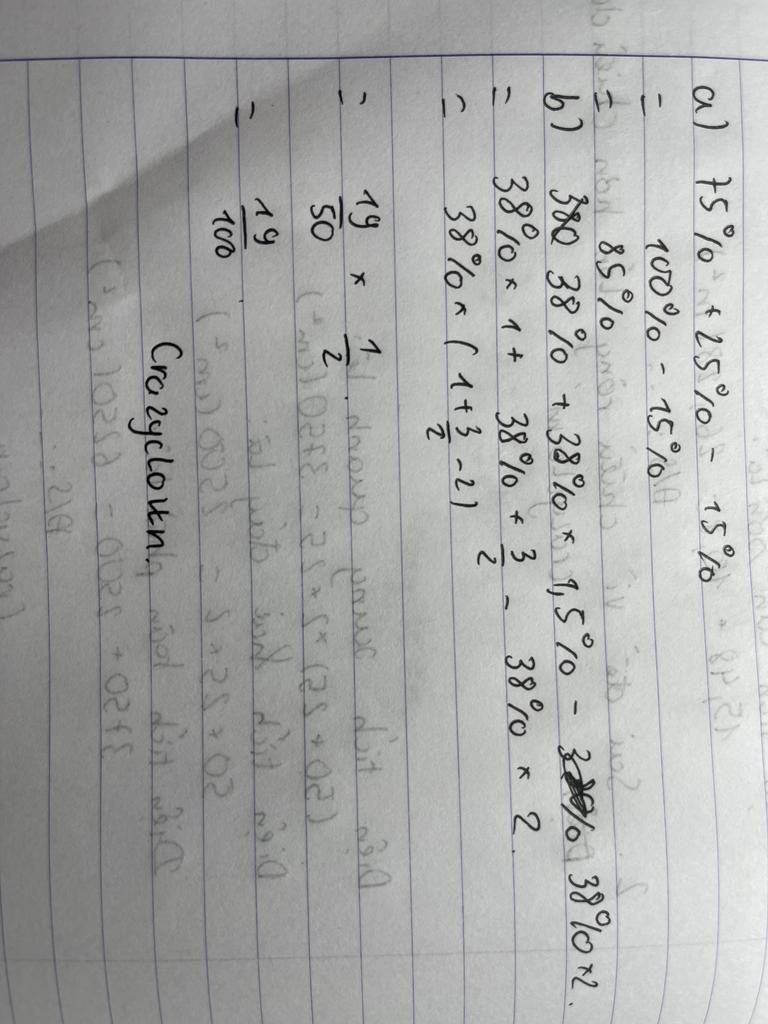 a) 75% + 25% - 15%
= 100% - 15%
= 85%
b) 38% + 38% × 1,5% - 38% × 2.
= 38% × 1 + 38% × 3/2 - 38% × 2.
= 38% × (1 + 3/2 - 2)
= 19/50 × 1/2.
= 19/100.
Crazyclown.